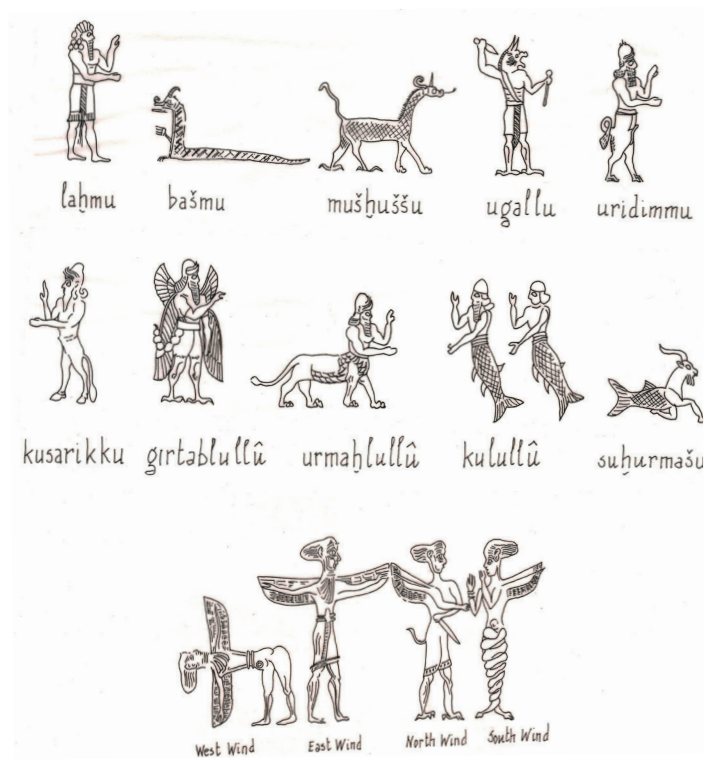 laḫmu bašmu mušḫuššu ugallu uridimmu
kusarikku girtablullû urmaḫlullû kulullû suḫurmašu
West Wind East Wind North Wind South Wind